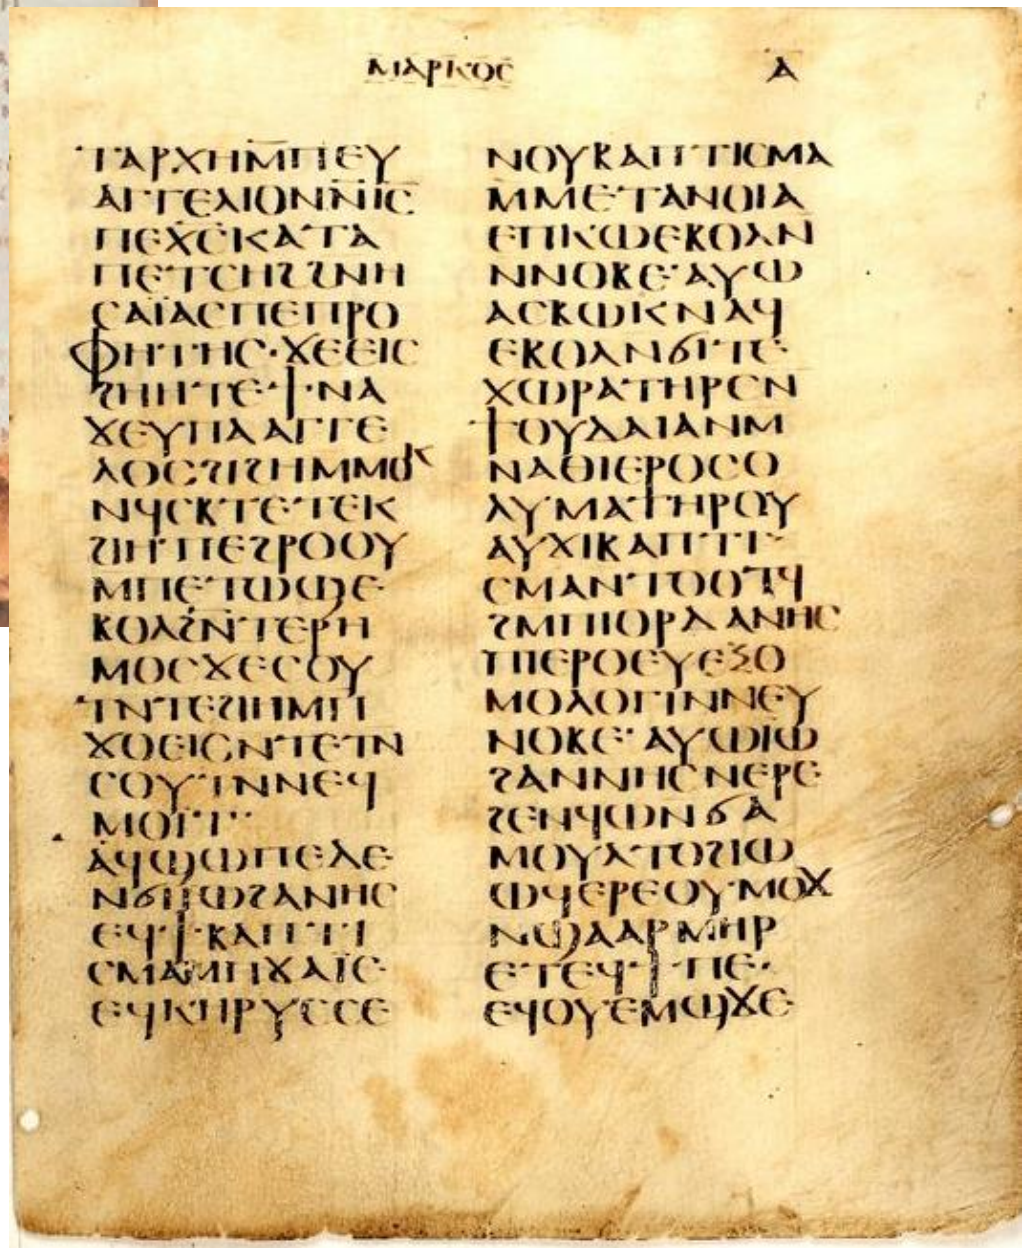 ⲙⲁⲣⲕⲟⲥ ⲁ̅
ⲧⲁⲣⲭⲏⲙ̅ⲡⲉⲩ
ⲁⲅⲅⲉⲗⲓⲟⲛⲛ̅ⲓ̅ⲥ̅
ⲡⲉⲭ̅ⲥ̅ⲕⲁⲧⲁ
ⲡⲉⲧⲥⲏϩϩⲛⲏ
ⲥⲁⲓ̈ⲁⲥⲡⲉⲡⲣⲟ
ⲫⲏⲧⲏⲥ·ϫⲉⲉⲓⲥ
ϩⲏⲏⲧⲉ·ϯ·ⲛⲁ
ϫⲉⲩⲡⲁⲁⲅⲅⲉ
ⲗⲟⲥϩⲓϩⲏⲙⲙⲟⲕ
ⲛϥⲥⲕⲧⲉⲧⲉⲕ
ϩⲓⲏⲡⲉϩⲣⲟⲟⲩ
ⲙⲡⲉⲧⲱϣⲉ
ⲃⲟⲗϩⲛ̅ⲧⲉⲣⲏ
ⲙⲟⲥϫⲉⲥⲟⲩ
ⲧⲛⲧⲉϩⲓⲏⲙⲡ
ϫⲟⲉⲓⲥⲛⲧⲉⲧⲛ
ⲥⲟⲩⲧⲛⲛⲉϥ
ⲙⲟⲓⲧ··
ⲁϥϣⲱⲡⲉⲇⲉ
ⲛϭⲓⲓ̈ⲱϩⲁⲛⲏⲥ
ⲉϥ·ϯ·ⲃⲁⲡⲧⲓ
ⲥⲙⲁⲙⲡϫⲁⲓ̈ⲉ·
ⲉϥⲕⲏⲣⲩⲥⲥⲉ
ⲛⲟⲩⲃⲁⲡⲧⲓⲥⲙⲁ
ⲙⲙⲉⲧⲁⲛⲟⲓⲁ
ⲉⲡⲕⲱⲉⲃⲟⲗⲛ
ⲛⲛⲟⲃⲉ·ⲁⲩⲱ
ⲁⲥⲃⲱⲕⲛⲁϥ
ⲉⲃⲟⲗⲛϭⲓⲧⲉ·
ⲭⲱⲣⲁⲧⲏⲣⲥⲛ
ϯⲟⲩⲇⲁⲓⲁⲛⲙ
ⲛⲁⲑⲓⲉⲣⲟⲥⲟ
ⲗⲩⲙⲁⲧⲏⲣⲟⲩ
ⲁⲩϫⲓⲃⲁⲡⲧⲓ
ⲥⲙⲁⲛⲧⲟⲟⲧϥ
ϩⲙⲡⲓⲟⲣⲇⲁⲛⲏⲥ
ⲡⲓⲉⲣⲟⲉⲩⲉⲝⲟ
ⲙⲟⲗⲟⲅⲓⲛⲛⲉⲩ
ⲛⲟⲃⲉ·ⲁⲩⲱⲓⲱ
ϩⲁⲛⲛⲏⲥⲛⲉⲣⲉ
ϩⲉⲛϥⲱⲛϭⲁ
ⲙⲟⲩⲗⲧⲟϩⲓⲱ
ⲱϥⲉⲣⲉⲟⲩⲙⲟϫ
ⲛϣⲁⲁⲣⲙⲏⲣ
ⲉⲧⲉϥ·ϯ·ⲡⲉ·
ⲉϥⲟⲩⲉⲙϣϫⲉ